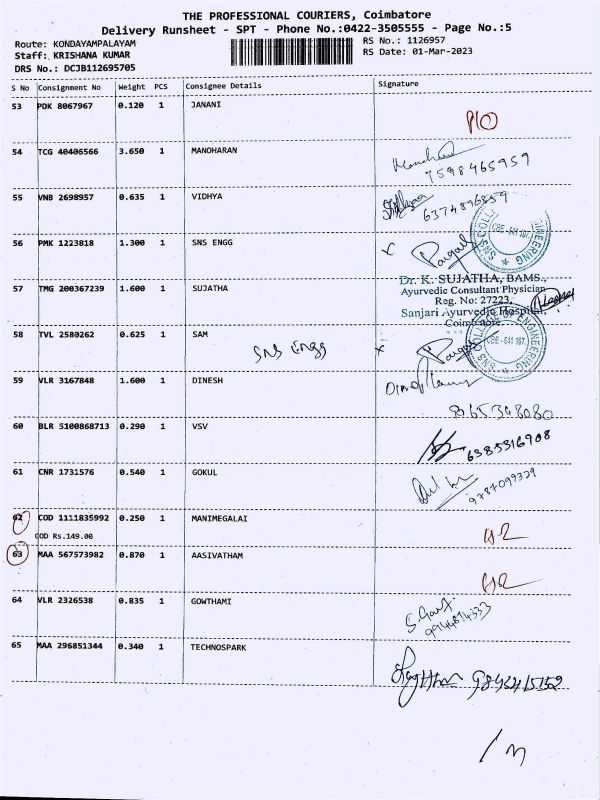 THE PROFESSIONAL COURIERS, Coimbatore
Delivery Runsheet - SPT - Phone No.:0422-3505555 - Page No.:5
Route: KONDAYAMPALAYAM
Staff: KRISHANA KUMAR
DRS No.: DCJB112695705
RS No.: 1126957
RS Date: 01-Mar-2023
S No Consignment No Weight PCS Consignee Details Signature
53 PDK 8067967 0.120 1 JANANI
54 TCG 40406566 3.650 1 MANOHARAN
7598465959
55 VNB 2698957 0.635 1 VIDHYA
6374896859
56 PMK 1223818 1.300 1 SNS ENGG
57 TMG 200367239 1.600 1 SUJATHA
Dr. K. SUJATHA, BAMS.,
Ayurvedic Consultant Physician
Reg. No: 27223,
Sanjari Ayurvedic Hospital,
Coimbatore
58 TVL 2580262 0.625 1 SAM
SNS Engg
59 VLR 3167848 1.600 1 DINESH
60 BLR 5100868713 0.290 1 VSV
6385316908
61 CNR 1731576 0.540 1 GOKUL
9787099329
62 COD 1111835992 0.250 1 MANIMEGALAI
COD Rs.149.00
63 MAA 567573982 0.870 1 AASIVATHAM
64 VLR 2326538 0.835 1 GOWTHAMI
65 MAA 296851344 0.340 1 TECHNOSPARK